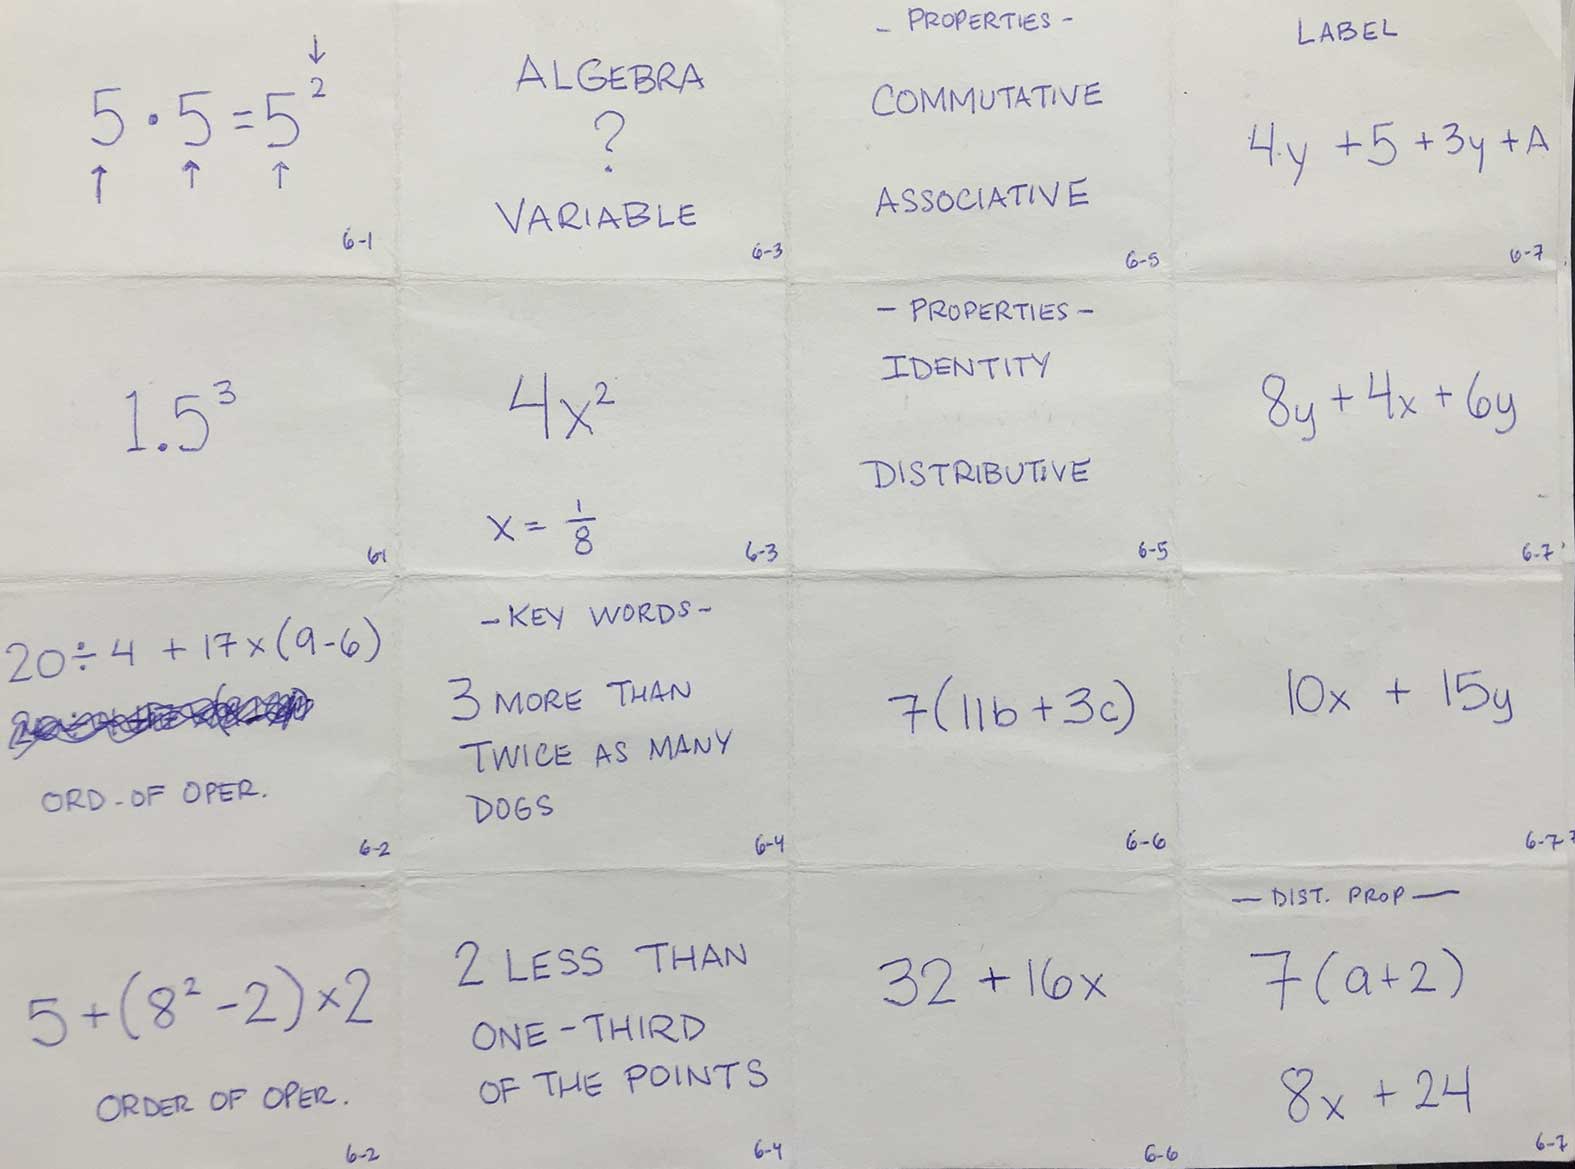 5 · 5 = 5²
↑ ↑ ↑ ↓
6-1
ALGEBRA
?
VARIABLE
6-3
- PROPERTIES -
COMMUTATIVE
ASSOCIATIVE
6-5
LABEL
4y + 5 + 3y + A
6-7
1.5³
6-1
4x²
x = 1/8
6-3
- PROPERTIES -
IDENTITY
DISTRIBUTIVE
6-5
8y + 4x + 6y
6-7
20 ÷ 4 + 17 x (9-6)
ORD-OF OPER.
6-2
- KEY WORDS -
3 MORE THAN
TWICE AS MANY
DOGS
6-4
7(11b + 3c)
6-6
10x + 15y
6-7
5 + (8² - 2) x 2
ORDER OF OPER.
6-2
2 LESS THAN
ONE-THIRD
OF THE POINTS
6-4
32 + 16x
6-6
— DIST. PROP —
7(a+2)
8x + 24
6-7